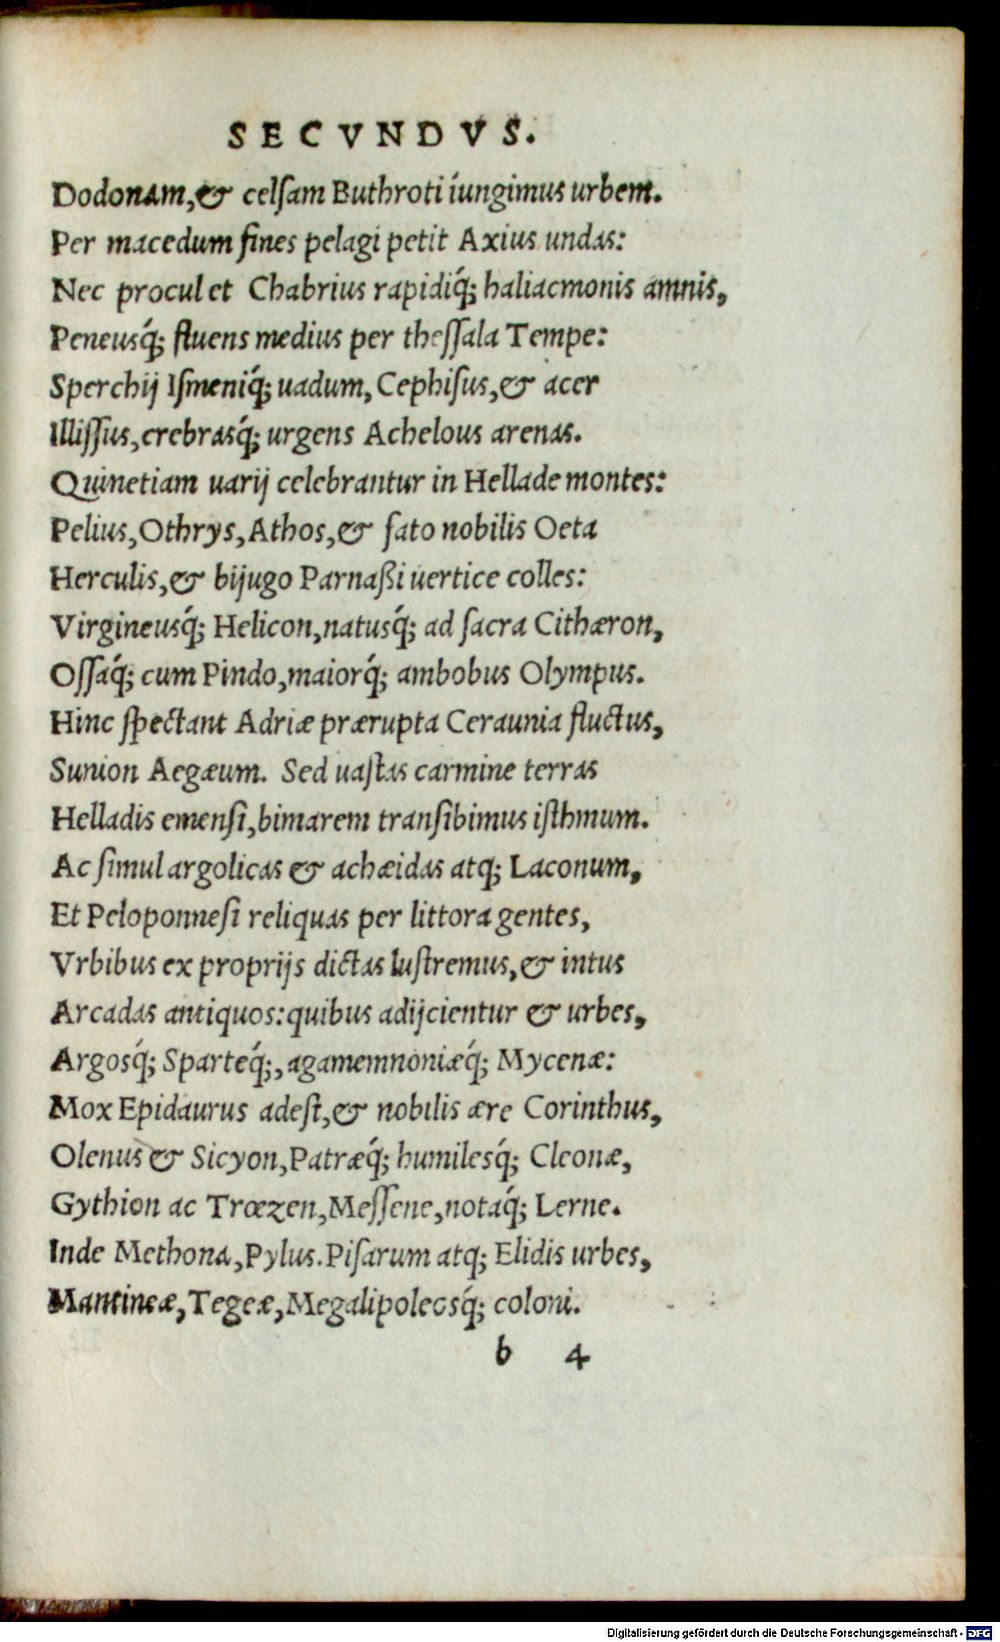 SECVNDVS.
Dodonam,& celſam Buthroti iungimus urbem.
Per macedum fines pelagi petit Axius undas:
Nec procul et Chabrius rapidiq́; haliacmonis amnis,
Peneusq́; fluens medius per theſſala Tempe:
Sperchij Iſmeniq́; uadum, Cephiſus,& acer
Illiſſus, crebrasq́; urgens Achelous arenas.
Quinetiam uarij celebrantur in Hellade montes:
Pelius, Othrys, Athos,& fato nobilis Oeta
Herculis,& bijugo Parnaßi uertice colles:
Virgineusq́; Helicon, natusq́; ad ſacra Cithæron,
Oſſaq́; cum Pindo, maiorq́; ambobus Olympus.
Hinc ſpectant Adriæ prærupta Ceraunia fluctus,
Sunion Aegæum. Sed uaſtas carmine terras
Helladis emenſi, bimarem tranſibimus iſthmum.
Ac ſimul argolicas & achæidas atq; Laconum,
Et Peloponneſi reliquas per littora gentes,
Vrbibus ex proprijs dictas luſtremus,& intus
Arcadas antiquos: quibus adijcientur & urbes,
Argosq́; Sparteq́;, agamemnoniæq́; Mycenæ:
Mox Epidaurus adeſt,& nobilis ære Corinthus,
Olenus & Sicyon, Patræq́; humilesq́; Cleonæ,
Gythion ac Trœzen, Meſſene, notaq́; Lerne.
Inde Methona, Pylus. Piſarum atq; Elidis urbes,
Mantineæ, Tegeæ, Megalipoleosq́; coloni.
b 4
Digitalisierung gefördert durch die Deutsche Forschungsgemeinschaft - DFG